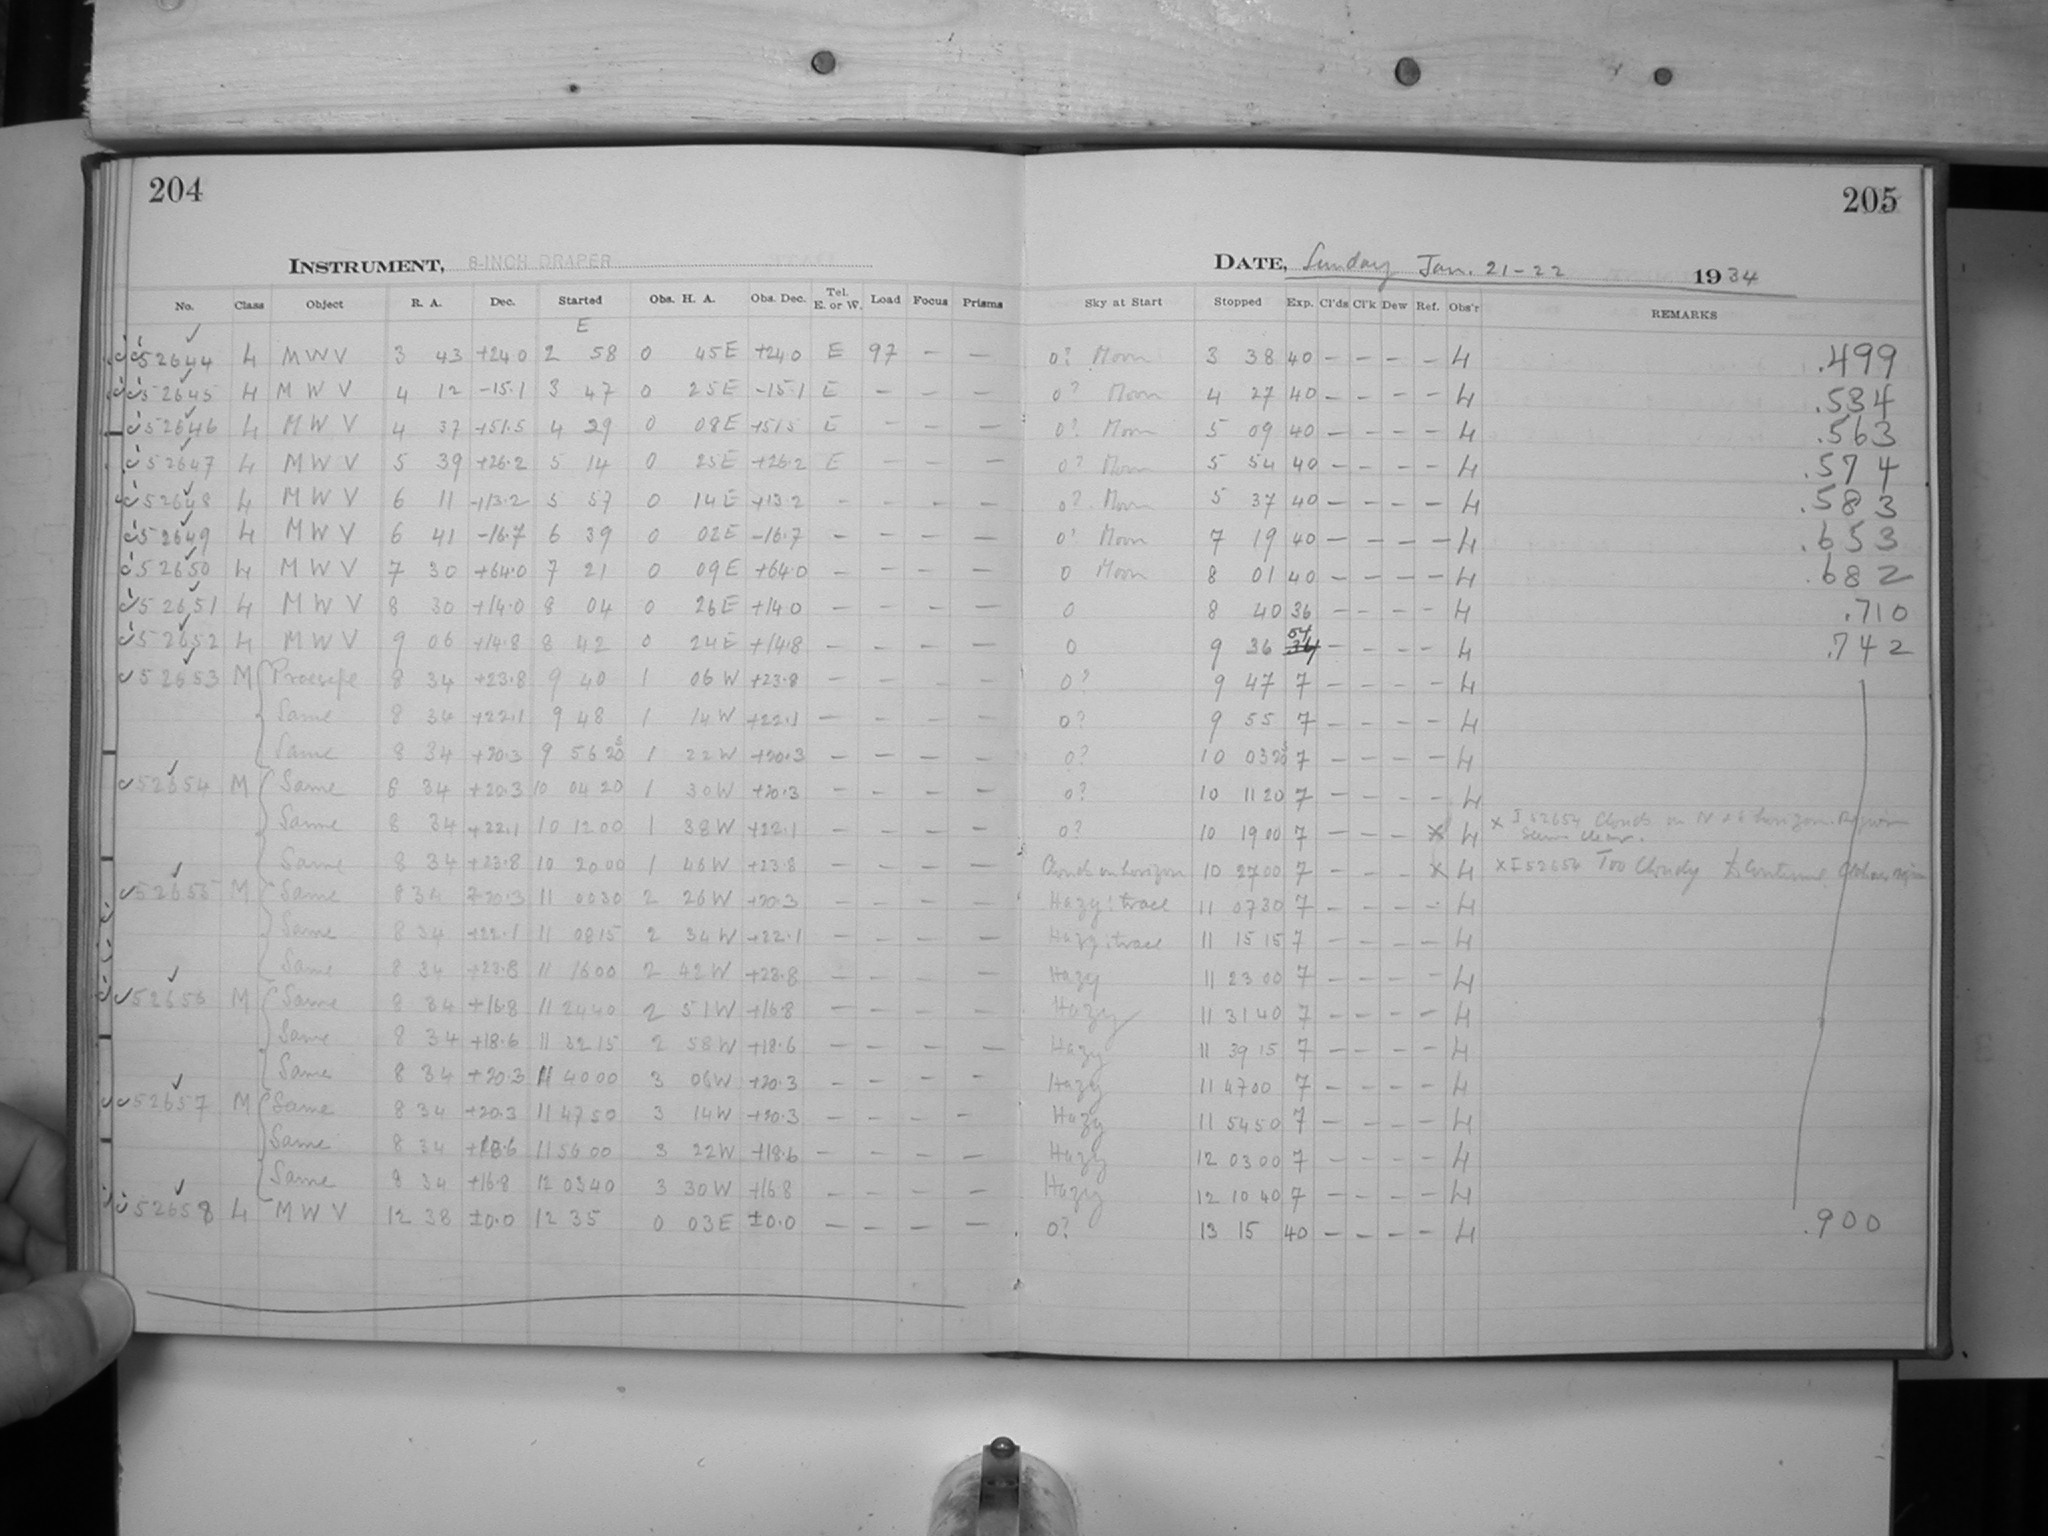 204
205
INSTRUMENT, 8-INCH DRAPER
DATE, Sunday Jan. 21-22 1934
No. Class Object R. A. Dec. Started Obs. H. A. Obs. Dec. Tel. E. or W. Load Focus Prisms Sky at Start Stopped Exp. Cl'ds Cl'k Dew Ref. Obs'r REMARKS
E
52644 L M W V 3 43 +24.0 2 58 0 45E +24.0 E 97 – – 0? Moon 3 38 40 – – – – L .499
52645 L M W V 4 12 -15.1 3 47 0 25E -15.1 E – – – 0? Moon 4 27 40 – – – – L .534
52646 L M W V 4 37 +51.5 4 29 0 08E +51.5 E – – – 0? Moon 5 09 40 – – – – L .563
52647 L M W V 5 39 +26.2 5 14 0 25E +26.2 E – – – 0? Moon 5 54 40 – – – – L .574
52648 L M W V 6 11 +13.2 5 57 0 14E +13.2 – – – – 0? Moon 5 37 40 – – – – L .583
52649 L M W V 6 41 -16.7 6 39 0 02E -16.7 – – – – 0? Moon 7 19 40 – – – – L .653
52650 L M W V 7 30 +64.0 7 21 0 09E +64.0 – – – – 0 Moon 8 01 40 – – – – L .682
52651 L M W V 8 30 +14.0 8 04 0 26E +14.0 – – – – 0 8 40 36 – – – – L .710
52652 L M W V 9 06 +14.8 8 42 0 24E +14.8 – – – – 0 9 36 54 – – – – L .742
52653 M Praesepe 8 34 +23.8 9 40 1 06 W +23.8 – – – – 0? 9 47 7 – – – – L
Same 8 34 +22.1 9 48 1 14W +22.1 – – – – 0? 9 55 7 – – – – L
Same 8 34 +20.3 9 56 20s 1 22W +20.3 – – – – 0? 10 03 20s 7 – – – – L
52654 M Same 8 34 +20.3 10 04 20 1 30W +20.3 – – – – 0? 10 11 20 7 – – – – L
Same 8 34 +22.1 10 12 00 1 38W +22.1 – – – – 0? 10 19 00 7 – – – x L x I 52654 Clouds on N & S horizon. Region
seems clear.
Same 8 34 +23.8 10 20 00 1 46W +23.8 – – – – Clouds on horizon 10 27 00 7 – – – x L x I 52654 Too Cloudy to Continue
52655 M Same 8 34 +20.3 11 00 30 2 26W +20.3 – – – – Hazy: trace 11 07 30 7 – – – – L
Same 8 34 +22.1 11 08 15 2 34W +22.1 – – – – Hazy: trace 11 15 15 7 – – – – L
Same 8 34 +23.8 11 16 00 2 42W +23.8 – – – – Hazy 11 23 00 7 – – – – L
52656 M Same 8 34 +16.8 11 24 40 2 51W +16.8 – – – – Hazy 11 31 40 7 – – – – L
Same 8 34 +18.6 11 32 15 2 58W +18.6 – – – – Hazy 11 39 15 7 – – – – L
Same 8 34 +20.3 11 40 00 3 06W +20.3 – – – – Hazy 11 47 00 7 – – – – L
52657 M Same 8 34 +20.3 11 47 50 3 14W +20.3 – – – – Hazy 11 54 50 7 – – – – L
Same 8 34 +18.6 11 56 00 3 22W +18.6 – – – – Hazy 12 03 00 7 – – – – L
Same 8 34 +16.8 12 03 40 3 30W +16.8 – – – – Hazy 12 10 40 7 – – – – L
52658 L M W V 12 38 ±0.0 12 35 0 03E ±0.0 – – – – 0? 13 15 40 – – – – L .900